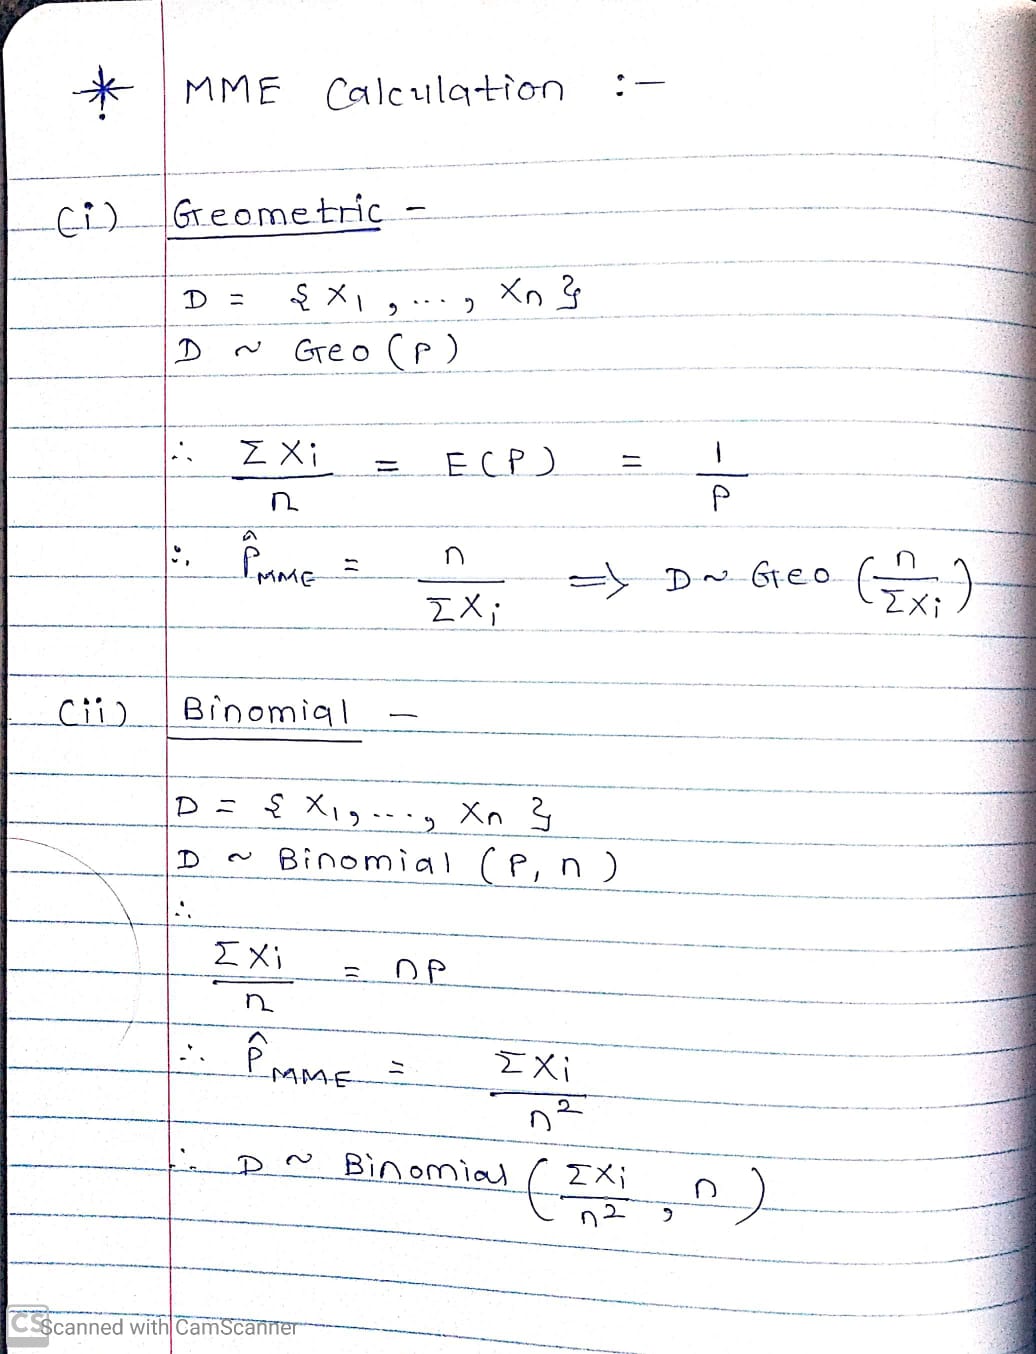 * MME Calculation :-
(i) Geometric -
D = { X1 , ... , Xn }
D ~ Geo (P)
∴ ΣXi / n = E(P) = 1 / P
∴ P̂MME = n / ΣXi ⇒ D ~ Geo (n / ΣXi)
(ii) Binomial -
D = { X1, ..., Xn }
D ~ Binomial (P, n)
∴
ΣXi / n = nP
∴ P̂MME = ΣXi / n²
∴ D ~ Binomial (ΣXi / n² , n)
CS Scanned with CamScanner